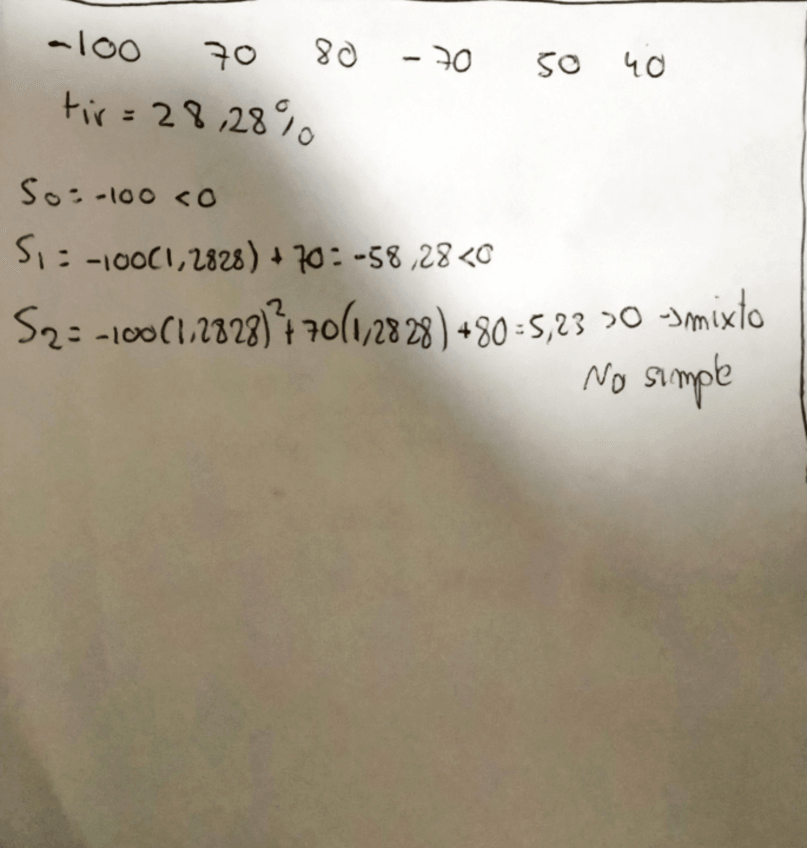 -100 70 80 -70 50 40
tir = 28,28%
S0 = -100 <0
S1 = -100(1,2828) + 70 = -58,28 <0
S2 = -100(1,2828)² + 70(1,2828) + 80 = 5,23 >0 → mixto
No simple